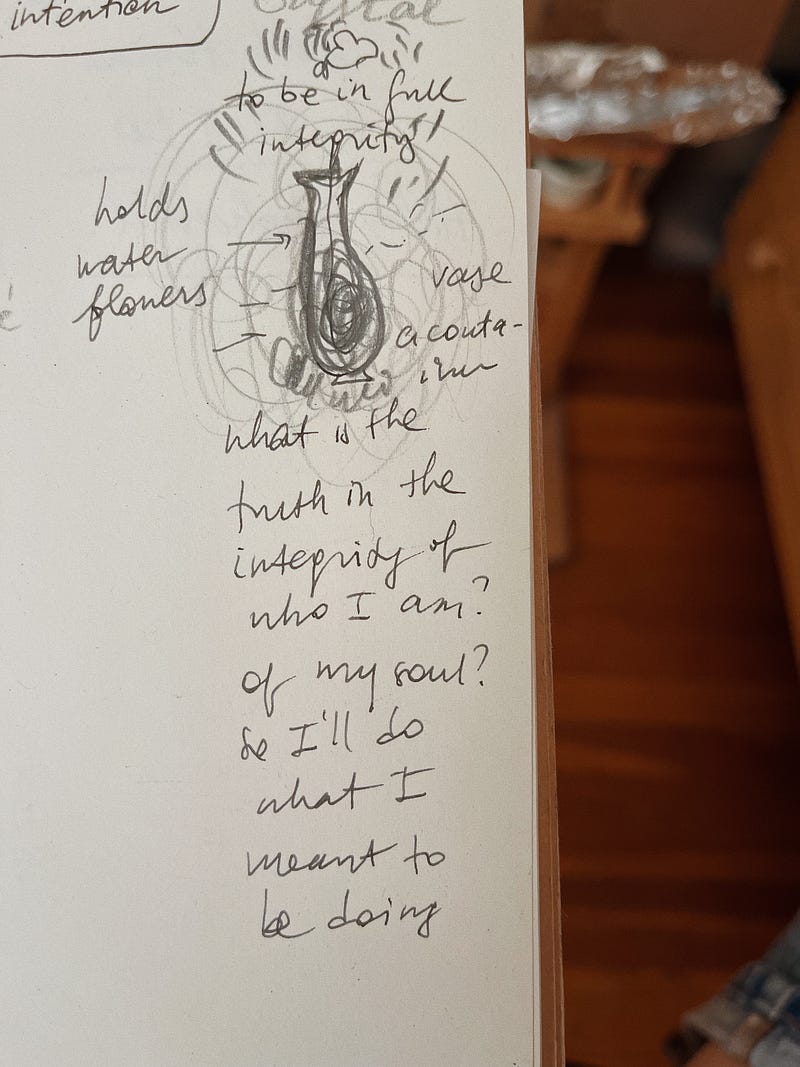 intention
Crystal
to be in full
integrity
holds
water
flowers
vase
a conta-
iner
what is the
truth in the
integridy of
who I am?
of my soul?
so I'll do
what I
meant to
be doing